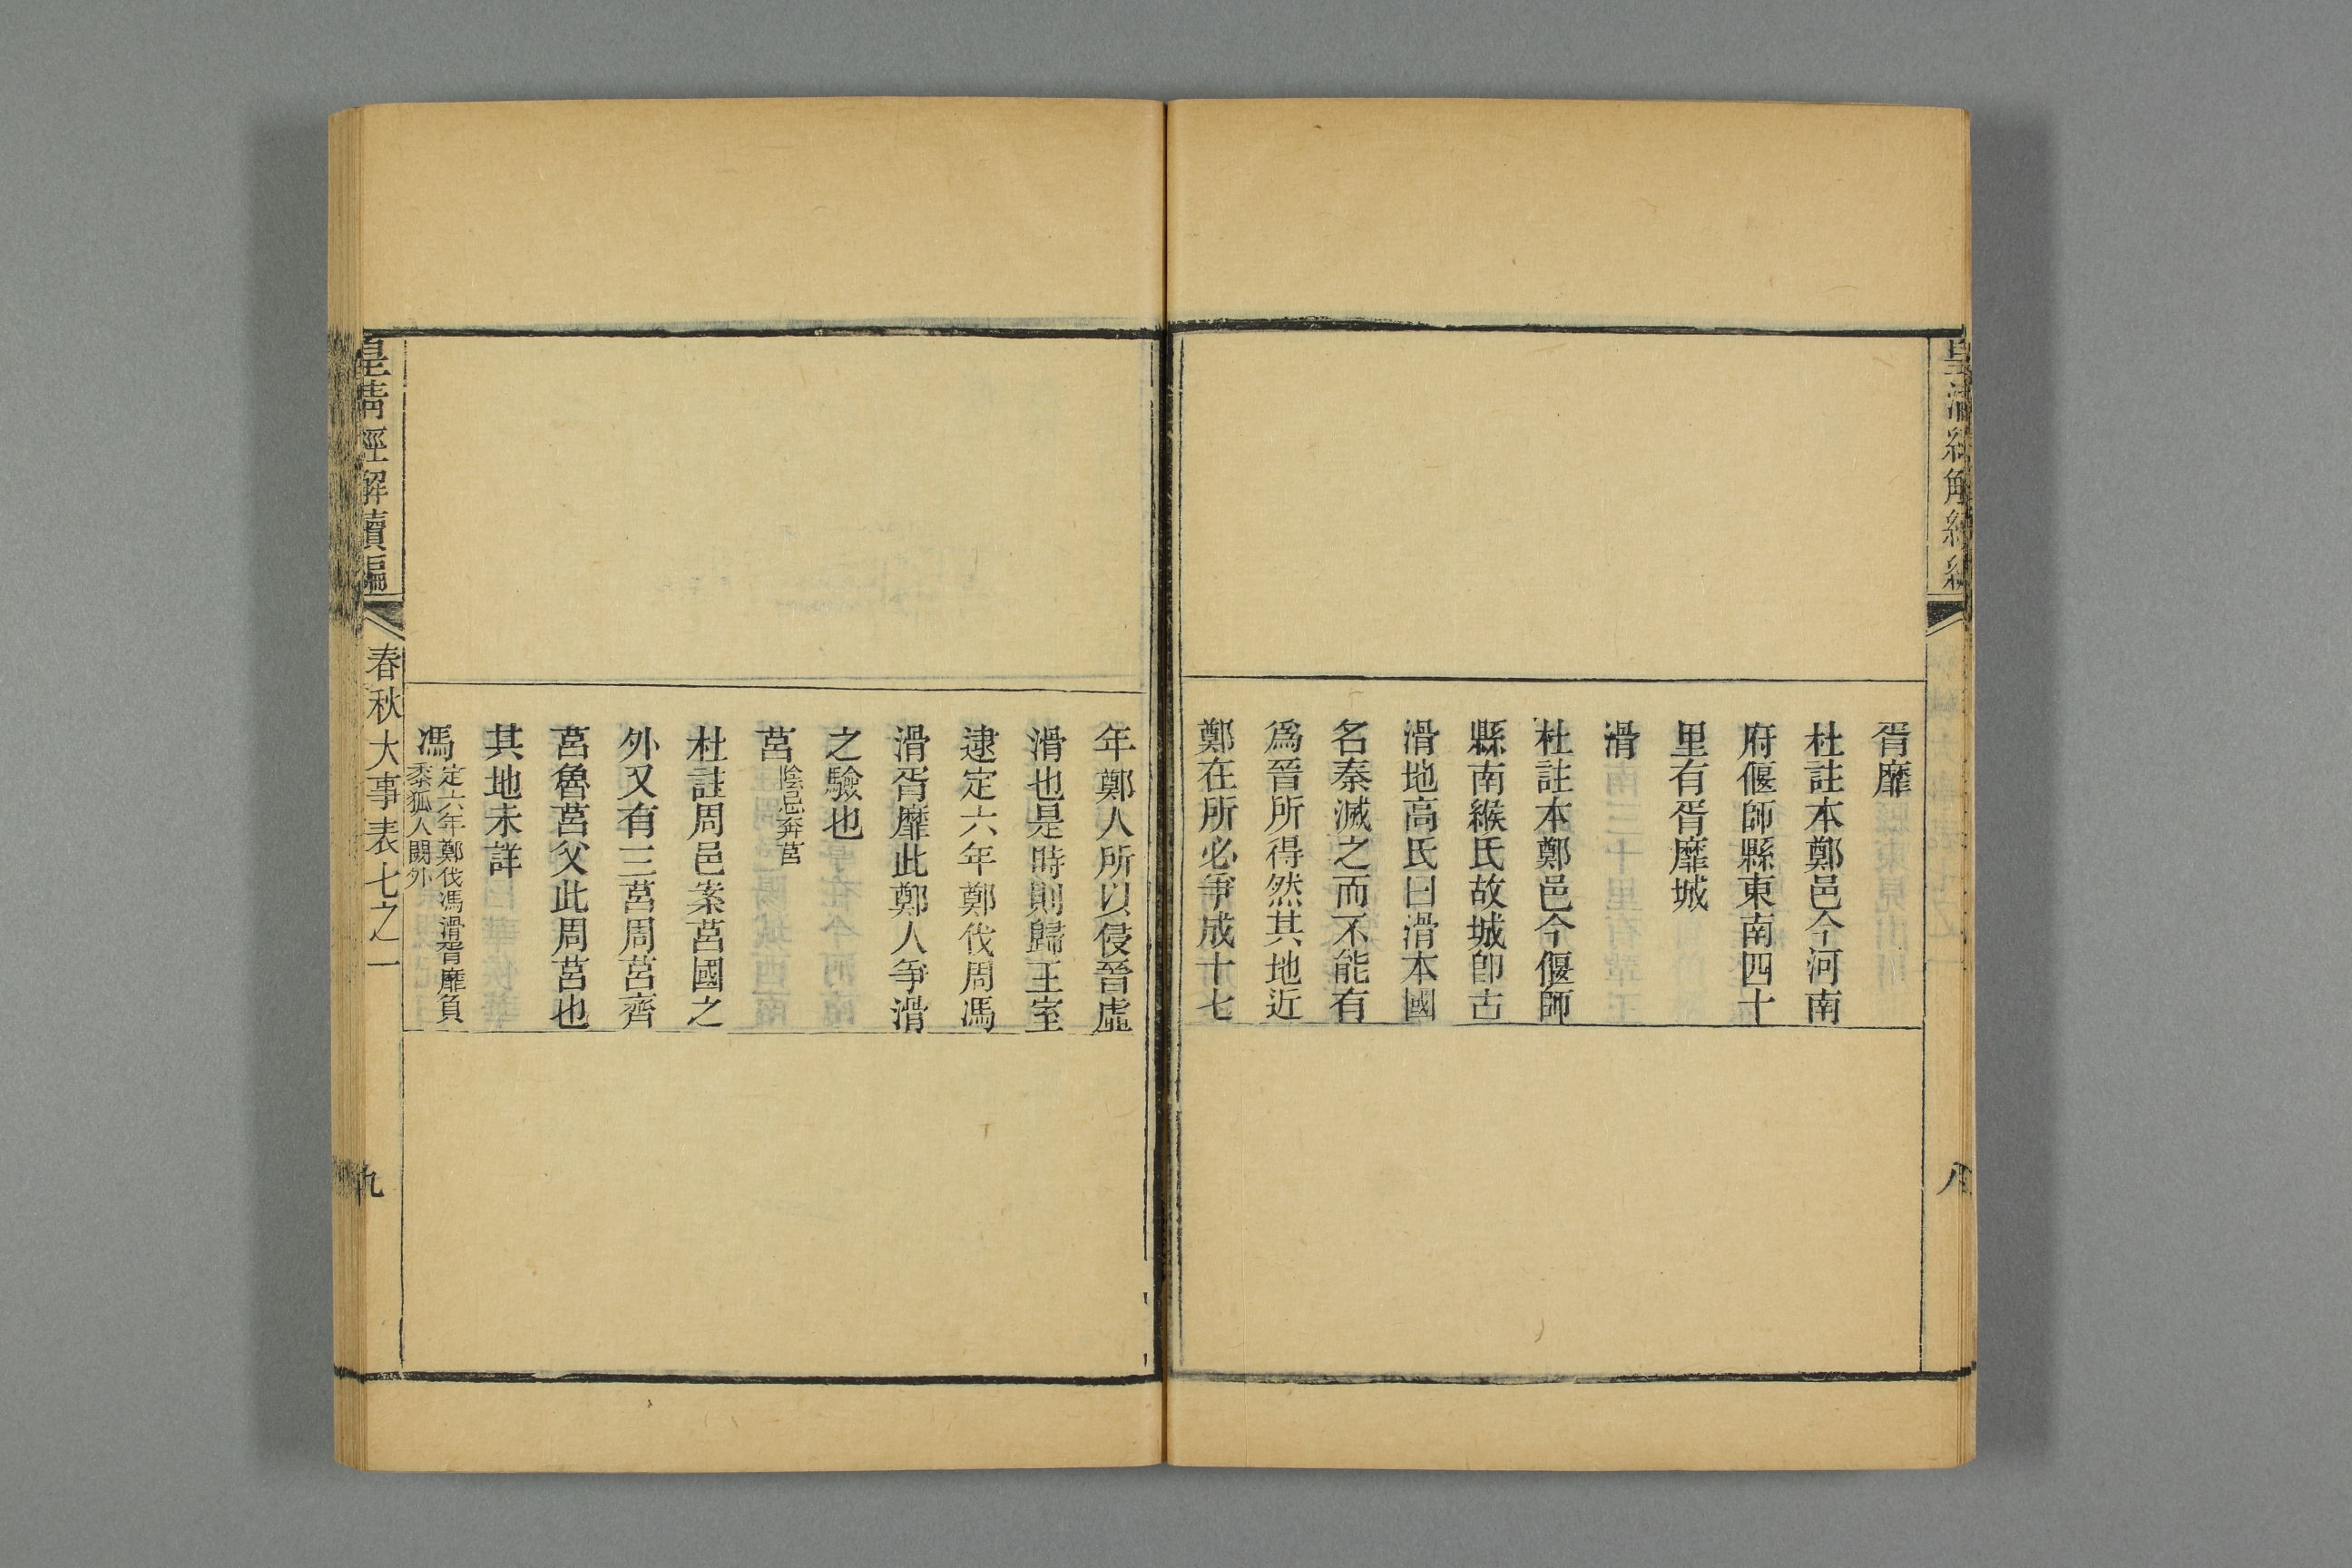 胥靡
杜註本鄭邑今河南
府偃師縣東南四十
里有胥靡城
滑
杜註本鄭邑今偃師
縣南緱氏故城卽古
滑地高氏曰滑本國
名秦滅之而不能有
爲晉所得然其地近
鄭在所必爭成十七
八
年鄭人所以侵晉虛
滑也是時則歸王室
逮定六年鄭伐周馮
滑胥靡此鄭人爭滑
之驗也
莒陰忌奔莒
杜註周邑案莒國之
外又有三莒周莒齊
莒魯莒父此周莒也
其地未詳
馮定六年鄭伐馮滑胥靡負
黍狐人闕外
皇清經解續編
春秋大事表七之一
九